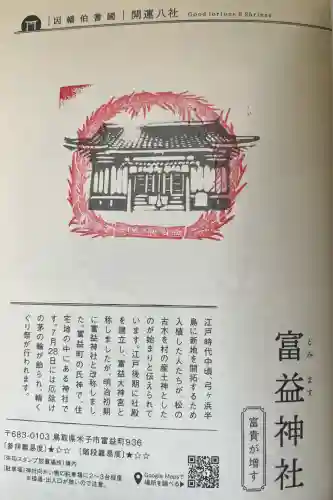 因幡伯耆國 開運八社 Good fortune 8 Shrines
富益神社
とみ ます
富貴が増す
江戸時代中頃、弓ヶ浜半
島に新地を開拓するため
入植した人たちが、松の
古木を村の産土神とした
のが始まりと伝えられて
います。江戸後期に社殿
を建立し、富益大神宮と
称しましたが、明治初期
に富益神社と改称しまし
た。富益町の氏神で、住
宅地の中にある神社で
す。7月28日には厄除け
の茅の輪が飾られ、輪く
ぐり祭が行われます。
〒683-0103 鳥取県米子市富益町936
[参拝難易度]★☆☆ [階段難易度]★☆☆
[朱印スタンプ設置場所]境内
[駐車場]神社向かい側の駐車場に2〜3台程度
※極細・出入口が狭いので注意。
Google Mapsで
場所を調べる▶